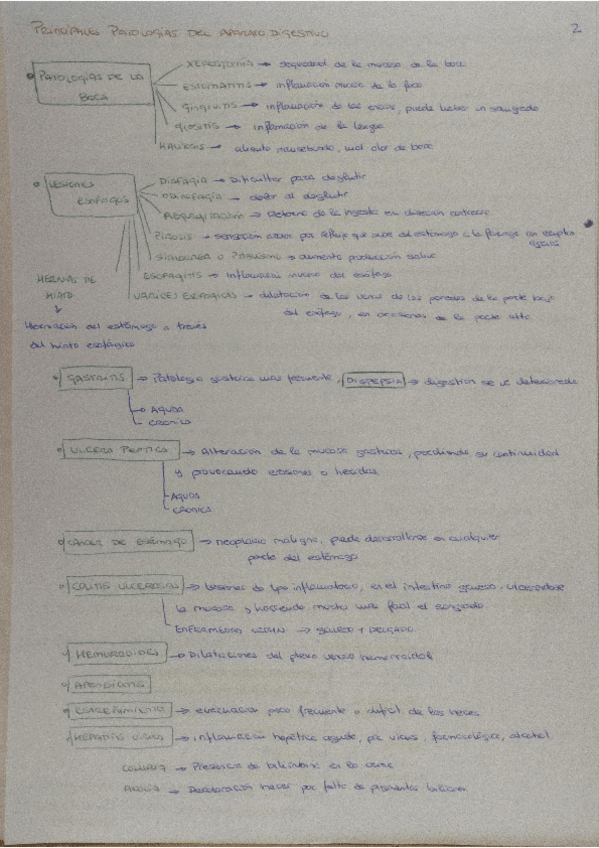 PRINCIPALES PATOLOGÍAS DEL APARATO DIGESTIVO
2
PATOLOGÍAS DE LA BOCA
XEROSTOMIA → sequedad de la mucosa de la boca
ESTOMATITIS → inflamación mucosa de la boca
GINGIVITIS → inflamación de las encías, puede haber un sangrado
GLOSITIS → inflamación de la lengua
HALITOSIS → aliento nauseabundo, mal olor de boca
LESIONES ESOFAGO
DISFAGIA → Dificultad para deglutir
ODINOFAGIA → dolor al deglutir
REGURGITACIÓN → Retorno de la ingesta en dirección contraria
PIROSIS → sensación ardor por reflujo que sube del estómago a la faringe con eructos agrios
SIALORREA O PTIALISMO → aumento producción saliva
ESOFAGITIS → Inflamación mucosa del esófago
VARICES ESOFAGICAS → dilatación de las venas de las paredes de la parte baja
del esófago, en ocasiones de la parte alta
HERNIAS DE HIATO
Herniación del estómago a través
del hiato esofágico
GASTRITIS → Patología gástrica más frecuente, DISPEPSIA → digestión se ve deteriorada
→ AGUDA
→ CRONICA
ULCERA PEPTICA → Alteración de la mucosa gástrica, perdiendo su continuidad
y provocando erosiones o heridas
AGUDA
CRONICA
CANCER DE ESTÓMAGO → neoplasia maligna, puede desarrollarse en cualquier
parte del estómago
COLITIS ULCEROSA → Lesiones de tipo inflamatorio, en el intestino grueso, ulcerándose
la mucosa y haciendo mucho más fácil el sangrado
ENFERMEDAD CROHN → GRUESO Y DELGADO
HEMORROIDES → Dilataciones del plexo venoso hemorroidal
APENDICITIS
ESTREÑIMIENTO → evacuación poco frecuente o difícil de las heces
HEPATITIS → inflamación hepática aguda, por virus, farmacológica, alcohol
COLURIA → Presencia de bilirrubina en la orina
ACOLIA → Decoloración heces por falta de pigmentos biliares